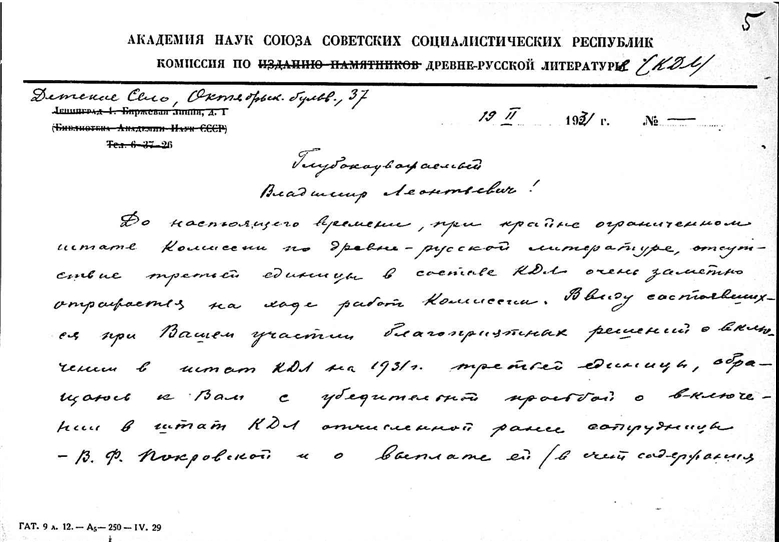 5
АКАДЕМИЯ НАУК СОЮЗА СОВЕТСКИХ СОЦИАЛИСТИЧЕСКИХ РЕСПУБЛИК
КОМИССИЯ ПО ИЗДАНИЮ ПАМЯТНИКОВ ДРЕВНЕ-РУССКОЙ ЛИТЕРАТУРЕ (КДЛ)
Детское Село, Октябрьск. бульв., 37
Ленинград 1. Биржевая линия, д. 1
(Библиотека Академии Наук СССР)
Тел. 6-37-26
19 II 1931 г. № —
Глубокоуважаемый
Владимир Леонтьевич!
До настоящего времени, при крайне ограниченном
штате Комиссии по древне-русской литературе, отсут-
ствие третьей единицы в составе КДЛ очень заметно
отражается на ходе работ Комиссии. Ввиду состоявших-
ся при Вашем участии благоприятных решений о вклю-
чении в штат КДЛ на 1931 г. третьей единицы, обра-
щаюсь к Вам с убедительной просьбой о включе-
нии в штат КДЛ отчисленной ранее сотрудницы
– В. Ф. Покровской и о выплате ей (в счет содержания
ГАТ. 9 л. 12.— А5— 250 — IV. 29